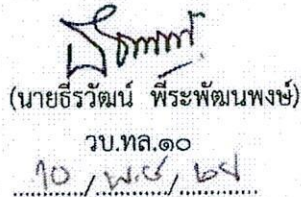 (นายธีรวัฒน์ พีระพัฒนพงษ์)
วบ.ทล.๑๐
10 / พ.ย. /